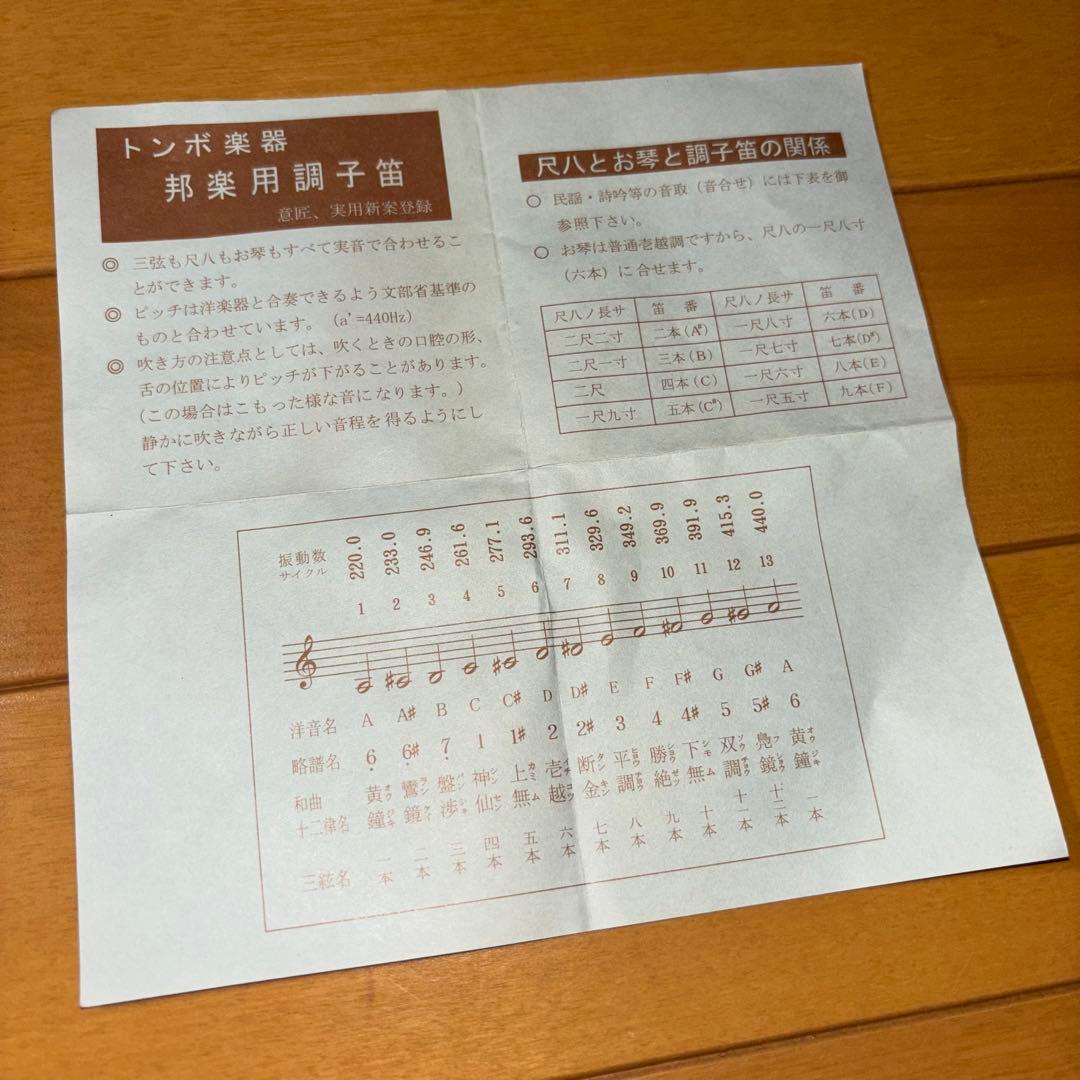 トンボ楽器
邦楽用調子笛
意匠、実用新案登録
◎ 三弦も尺八もお琴もすべて実音で合わせるこ
とができます。
◎ ピッチは洋楽器と合奏できるよう文部省基準の
ものと合わせています。(a'=440Hz)
◎ 吹き方の注意点としては、吹くときの口腔の形、
舌の位置によりピッチが下がることがあります。
(この場合はこもった様な音になります。)
静かに吹きながら正しい音程を得るようにし
て下さい。
尺八とお琴と調子笛の関係
○ 民謡・詩吟等の音取(音合せ)には下表を御
参照下さい。
○ お琴は普通壱越調ですから、尺八の一尺八寸
(六本)に合せます。
尺八ノ長サ 笛 番 尺八ノ長サ 笛 番
二尺二寸 二本(A#) 一尺八寸 六本(D)
二尺一寸 三本(B) 一尺七寸 七本(D#)
二尺 四本(C) 一尺六寸 八本(E)
一尺九寸 五本(C#) 一尺五寸 九本(F)
振動数 220.0 233.0 246.9 261.6 277.1 293.6 311.1 329.6 349.2 369.9 391.9 415.3 440.0
サイクル
1 2 3 4 5 6 7 8 9 10 11 12 13
洋音名 A A# B C C# D D# E F F# G G# A
略譜名 6̣ 6̣# 7̣ 1 1# 2 2# 3 4 4# 5 5# 6
和曲十二律名 黄鐘 鸞鏡 盤渉 神仙 上無 壱越 断金 平調 勝絶 下無 双調 鳧鏡 黄鐘
三絃名 一本 二本 三本 四本 五本 六本 七本 八本 九本 十本 十一本 十二本 一本